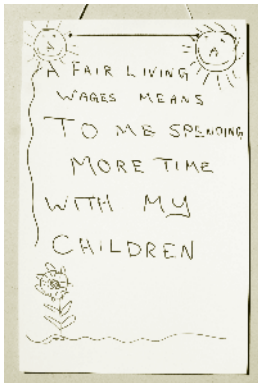 A A
A FAIR LIVING
WAGES MEANS
TO ME SPENDING
MORE TIME
WITH MY
CHILDREN